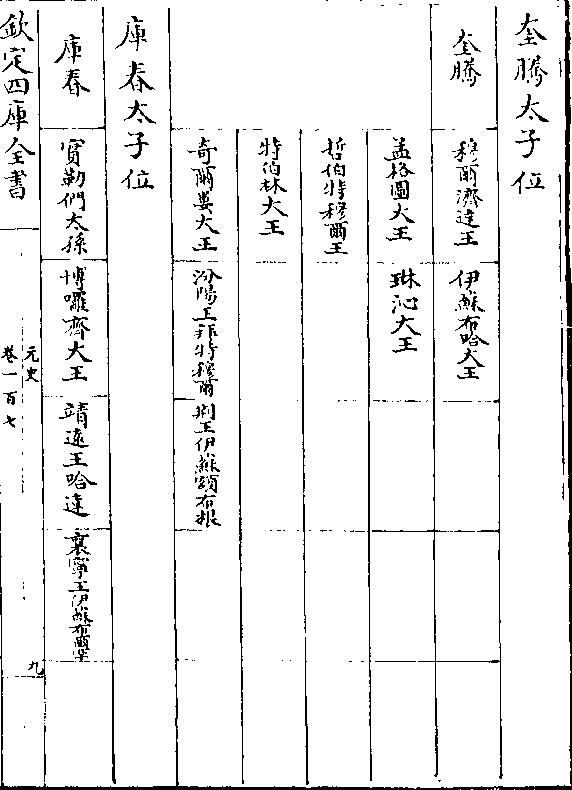 奎騰太子位
奎騰
穆爾濟達王
伊蘇布哈大王
孟格圖大王
琳沁大王
哲伯特穆爾王
特伯林大王
奇爾婁大王
汾陽王拜特穆爾
荆王伊蘇額布根
庫春太子位
庫春
實勒們太孫
博囉齊大王
靖遠王哈達
襄寧王伊蘇布爾
欽定四庫全書
元史
卷一百七
九